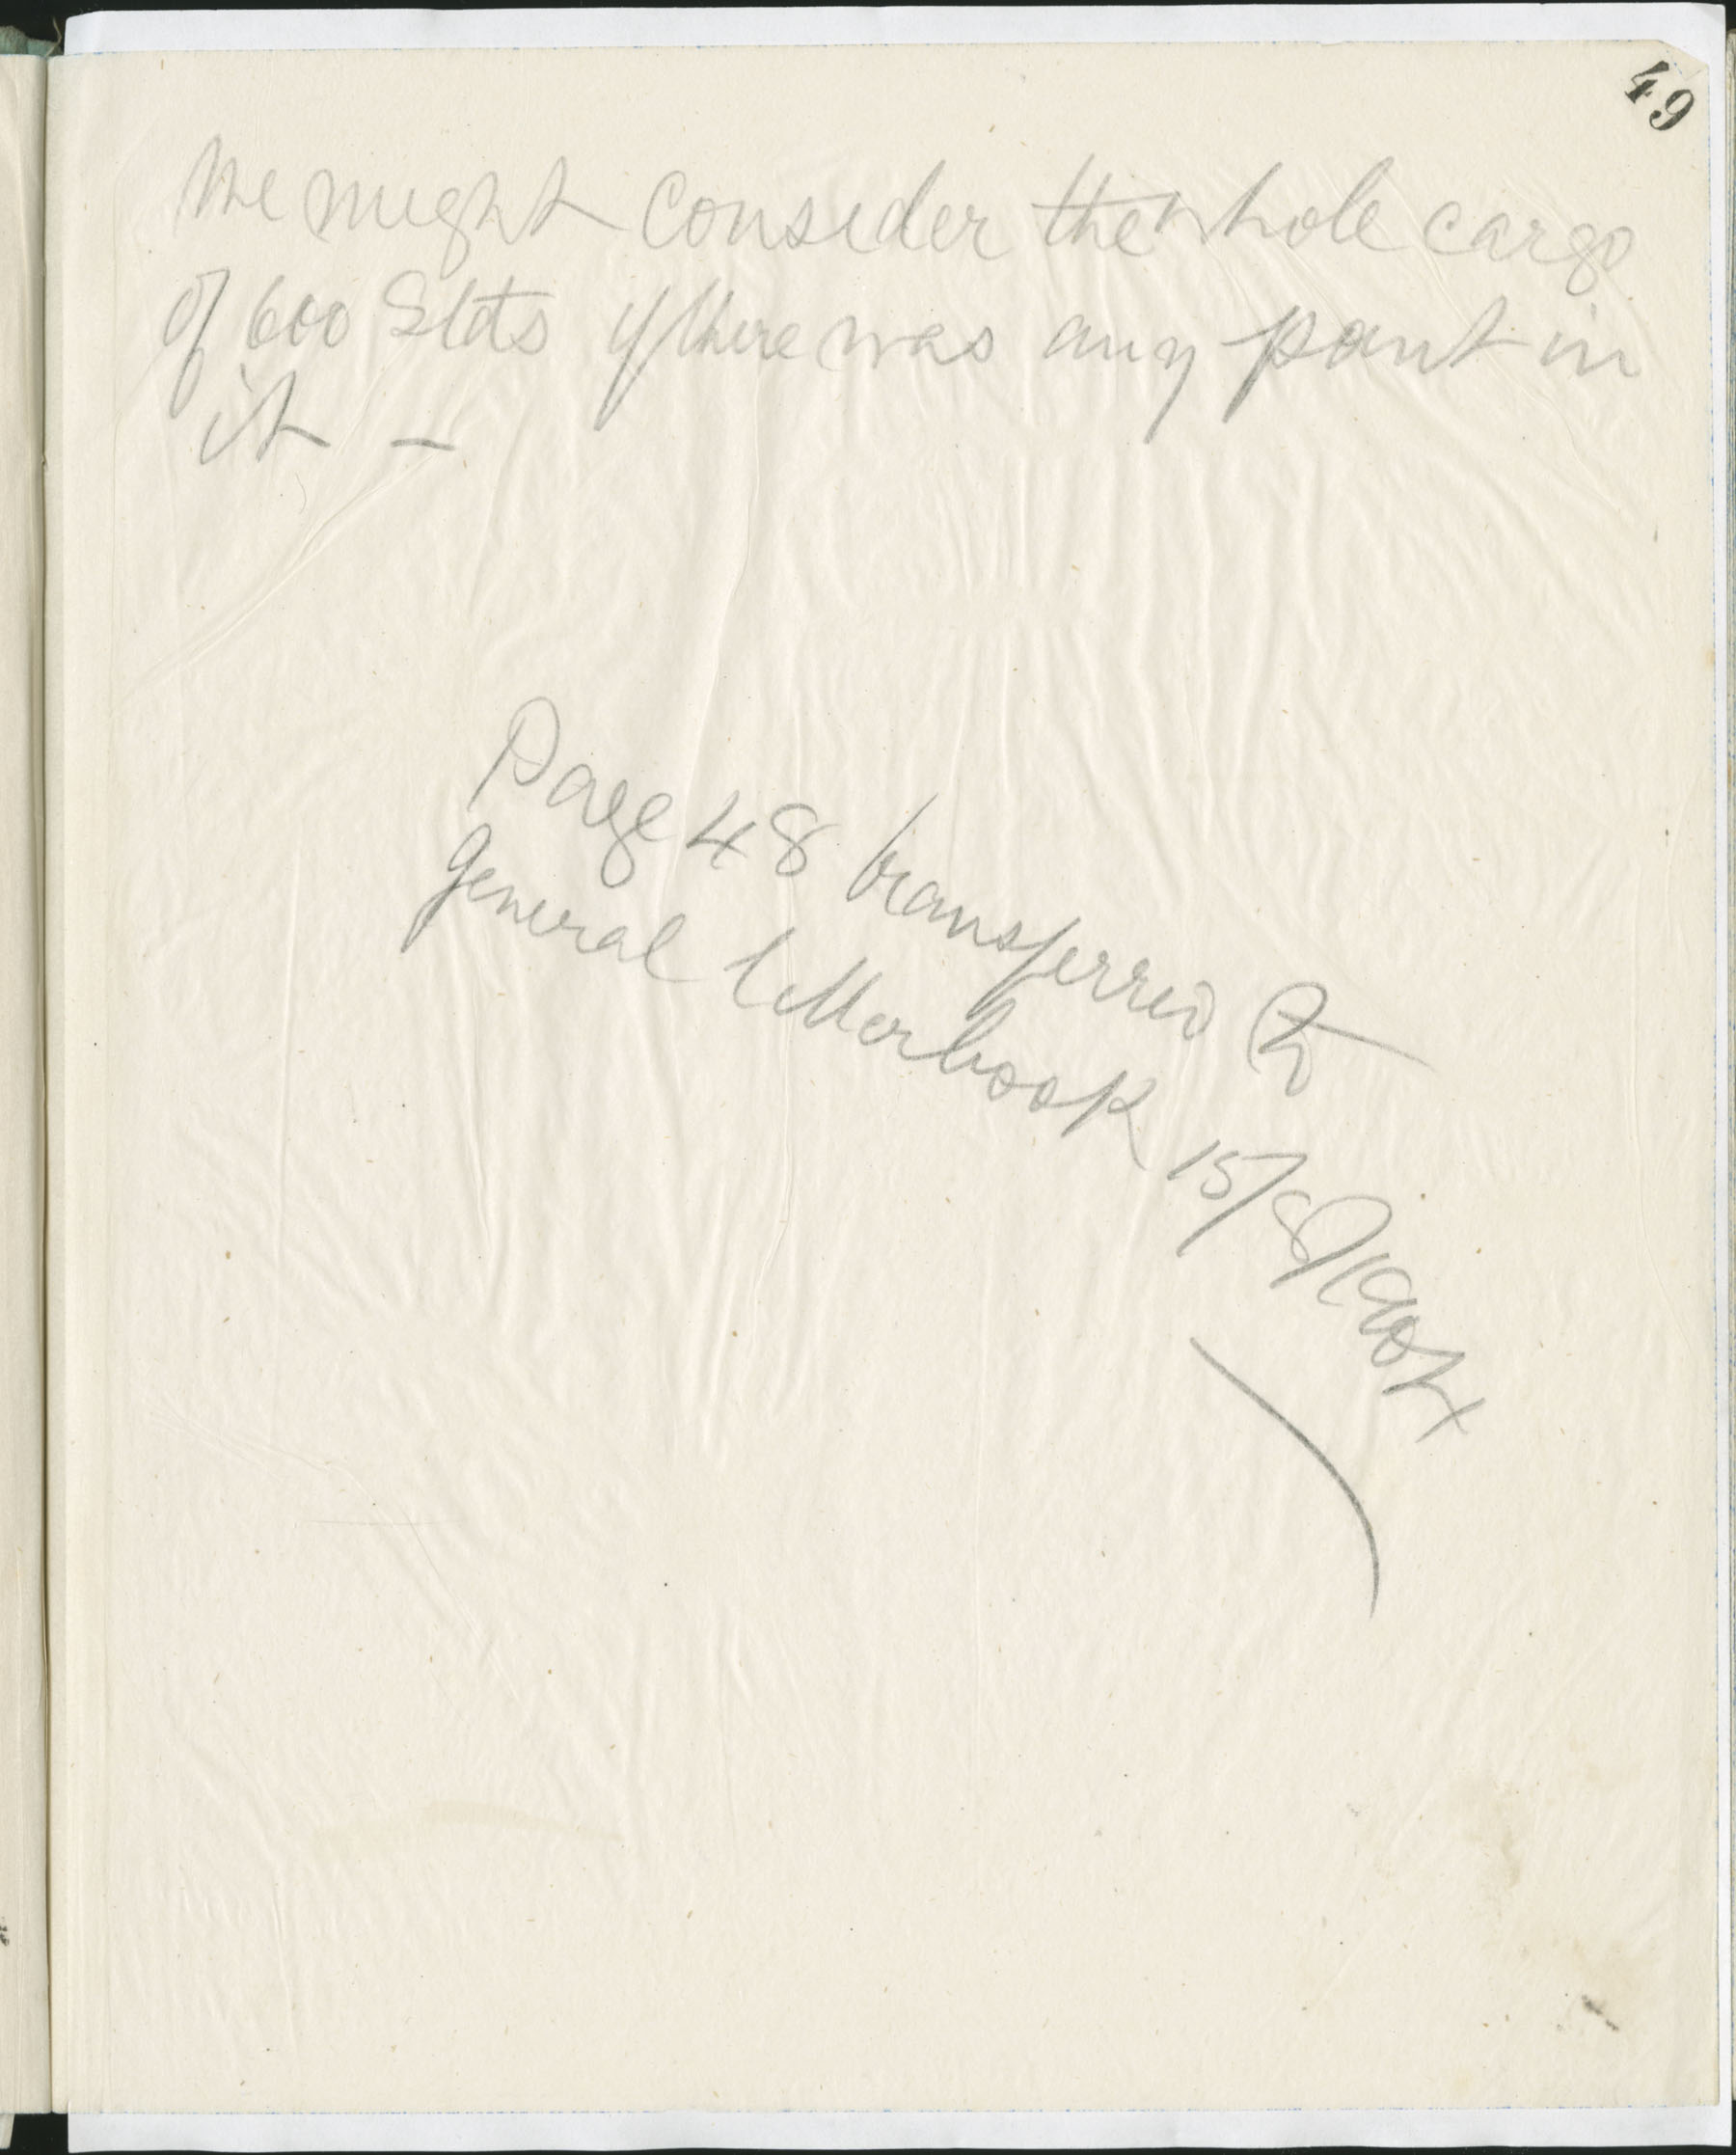 49
We might consider the whole cargo
of 600 Stds if there was any point in
it —
Page 48 transferred to
General letterbook 15/8/1904